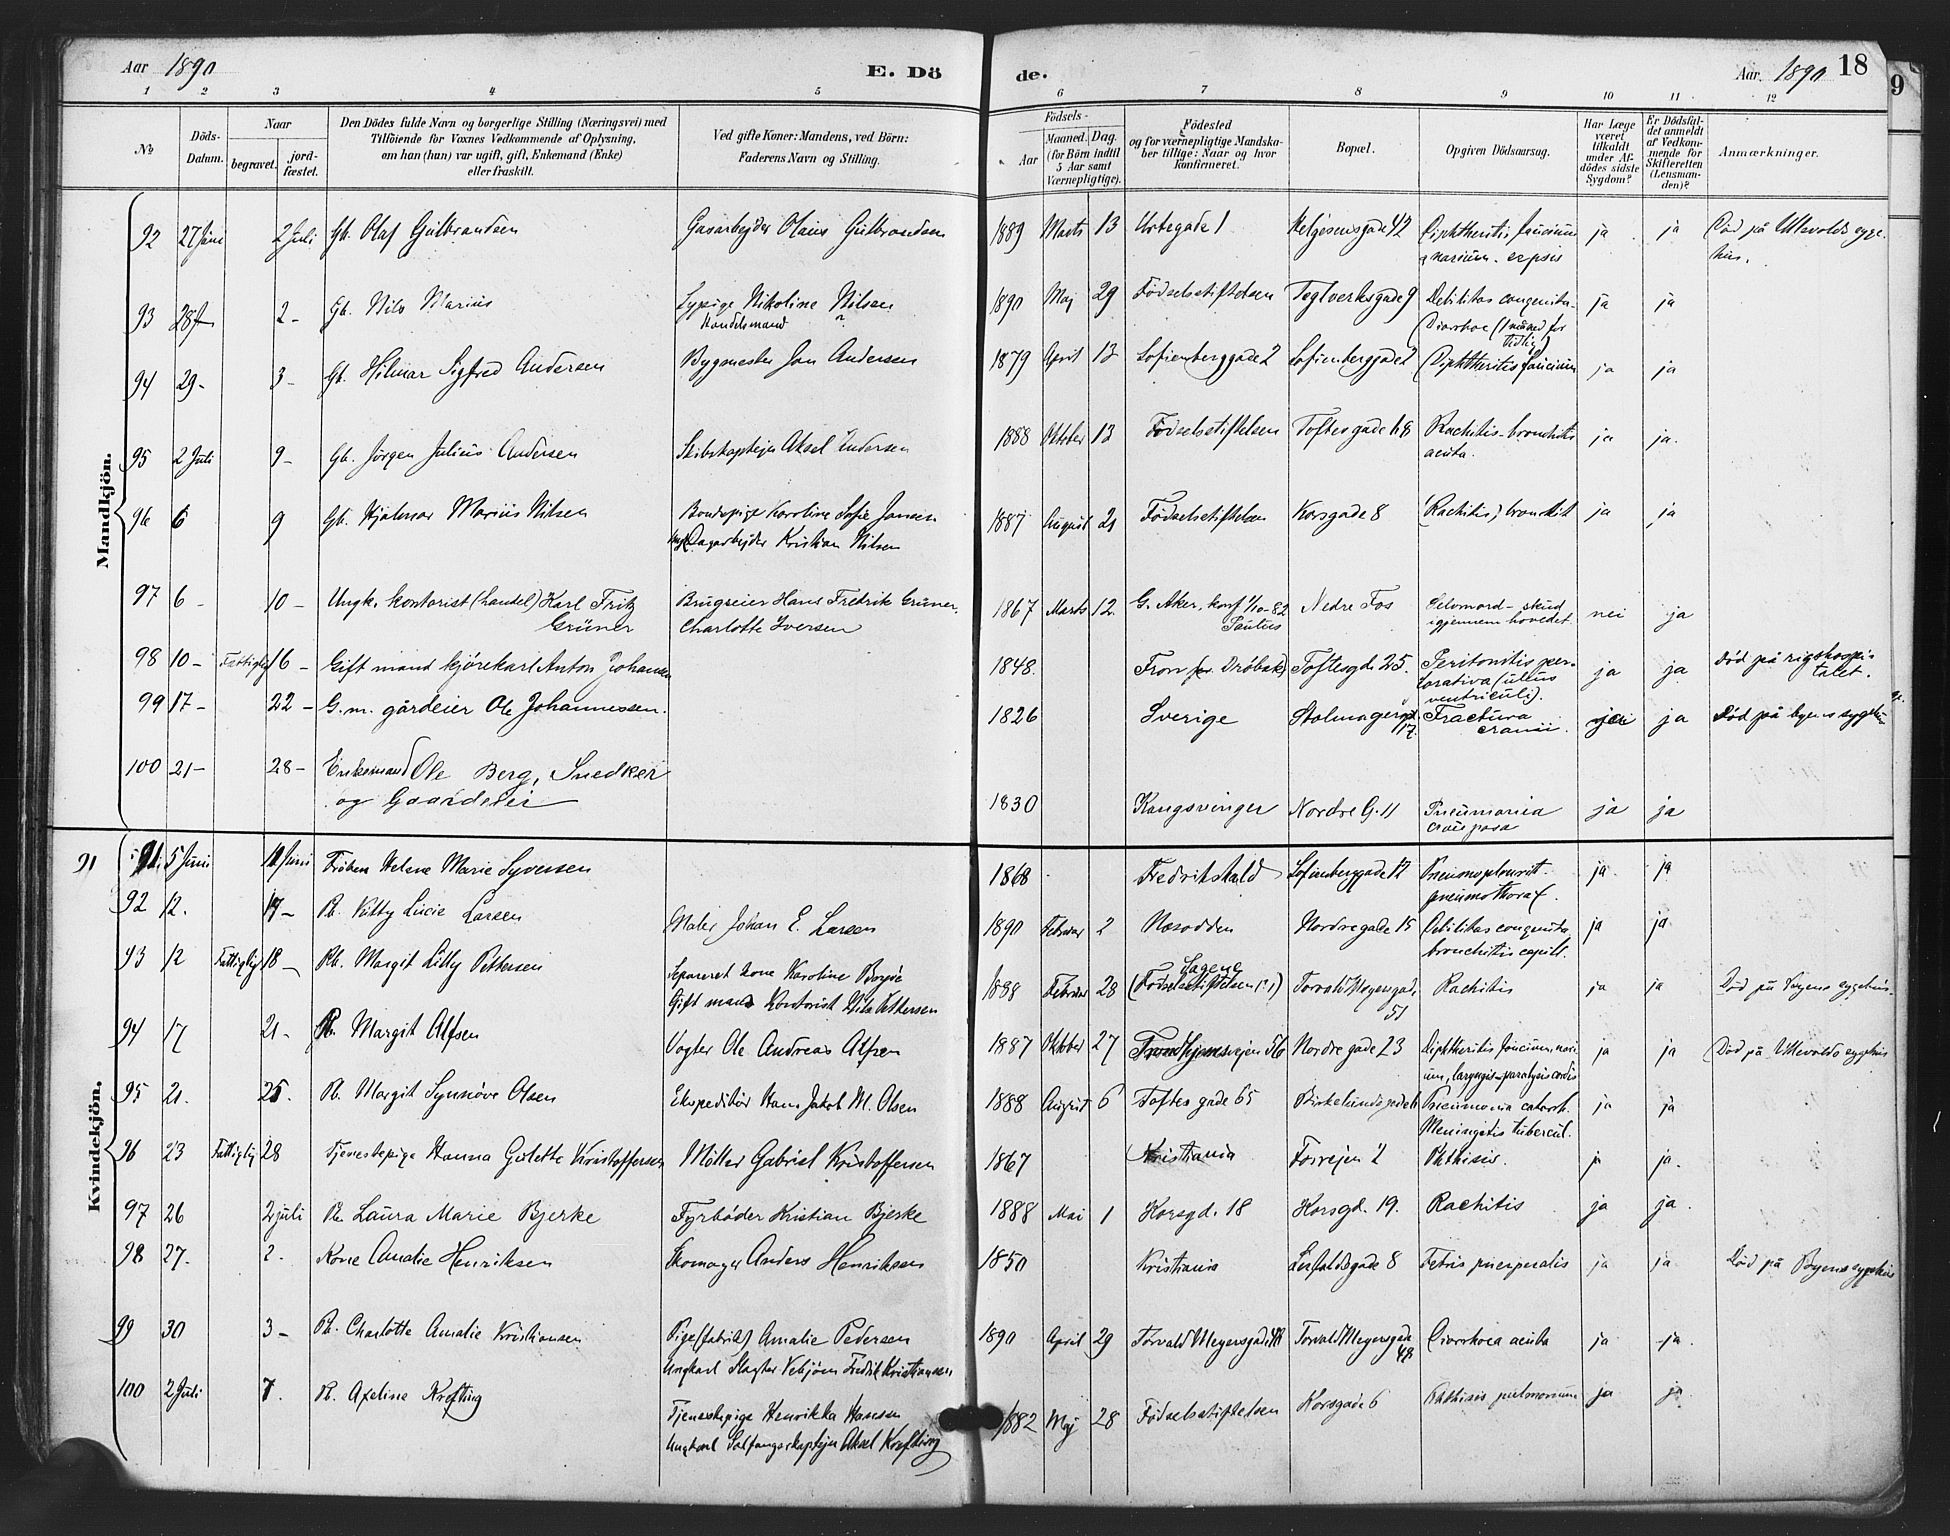 Aar 1890 E. Dö
de. Aar 1890 18
1 2 3 4 5 6 7 8 9 10 11 12
№ Döds-Datum. Naar begravet. jord-fæstet. Den Dödes fulde Navn og borgerlige Stilling (Næringsvei) med Tilföiende for Voxnes Vedkommende af Oplysning, om han (hun) var ugift, gift, Enkemand (Enke) eller fraskilt. Ved gifte Koner: Mandens, ved Börn: Faderens Navn og Stilling.
Födsels- Aar Maaned. Dag. (for Börn indtil 5 Aar samt Værnepligtige). Födested og for værnepligtige Mandskaber tillige: Naar og hvor konfirmeret. Bopæl. Opgiven Dödsaarsag. Har Læge været tilkaldt under Afdödes sidste Sygdom? Er Dödsfaldet anmeldt af Vedkommende for Skifteretten (Lensmanden)? Anmærkninger.
Mandkjön.
92 27 Juni 2 Juli Gb. Olaf Gulbrandsen Gasarbejder Olaus Gulbrandsen 1889 Marts 13 Urtegade 1 Helgesensgade 42 Diphtheritis faucium & narium. sepsis ja ja Död på Ullevolds sygehus.
93 28 2 - Gb. Nils Marius Sypige Nikoline Nilsen Handelsmand ? 1890 Maj 29 Födselsstiftelsen Teglverksgade 9 Debilitas congenita - Diarrhoe (1 måned for tidlig) ja ja
94 29 - 3 - Gb. Hilmar Sigfred Andersen Bygmester Jan Andersen 1879 April 12 Sofienberggade 2 Sofienberggade 2 Diphtheritis faucium ja ja
95 2 Juli 9 - Gb. Jörgen Julius Andersen Skibskaptejn Aksel Andersen 1888 Oktober 13 Födselsstiftelsen Toftesgade 68 Rachitis - bronchitis acuta. ja ja.
96 6 9 Gb. Hjalmar Marius Nilsen Bondepige Karoline Sofie Jansen Ungk. Dagarbejder Kristian Nilsen 1887 August 21 Födselsstiftelsen Korsgade 8 Rachitis; bronchit ja ja
97 6 - 10 - Ungk. kontorist (handel) Karl Fritz Grüner Brugseier Hans Fredrik Grüner. Charlotte Iversen 1867 Marts 12. G. Aker, konf 1/10-82 Paulus Nedre Fos Selvmord - skud igjennem hovedet. nei ja
98 10 - Fattiglig 16 - Gift mand kjörekarl Anton Johansen 1848. Fron for Dröbak Toftesgd. 25. Peritonitis perforativa (ulcus ventriculi). ja ja Död på rigshospitalet.
99 17 - 22 - G. m. gårdeier Ole Johannessen. 1826 Sverige Stolmagergd. 17 Fractura cranii. ja Död på byens sygehus
100 21 - 28 - Enkemand Ole Berg, Snedker og Gaardeier 1830 Kongsvinger Nordre G. 11 Pneumonia crouposa ja ja
Kvindekjön.
91 91 5 Juni 11 Juni Fröken Helene Marie Syversen 1868 Fredrikshald Sofienberggade 12 Pneumopleurit. pneumothorax. ja. ja
92 12. 17 - Pb. Kitty Lucie Larsen Maler Johan E. Larsen 1890 Februar 2 Næsodden Nordregade 15 Debilitas congenita bronchitis capill. ja ja
93 12 Fattiglig 18 - Pb. Margit Lilly Pettersen Separeret kone Karoline Gift mand Kontorist Nils Pettersen 1888 Februar 28 Sagene (Födselsstiftelsen) Torvald Meyersgade 51 Rachitis ja ja Död på byens sygehus.
94 17 21 - Pb. Margit Alfsen Vogter Ole Andreas Alfsen 1887 Oktober 27 Trondhjemsvejen 56 Nordregade 23 Diphtheritis faucium, narium, laryngis - paralysis cordis ja ja Död på Ullevolds sygehus
95 21. 25. Pb. Margit Synnöve Olsen Ekspeditör Hans Jakob M. Olsen 1888 August 6 Toftes gade 65 Birkelundsgade Pneumonia catarrh. Meningitis tubercul. ja ja
96 23 Fattiglig 28 Tjenestepige Hanna Golette Kristoffersen Möller Gabriel Kristoffersen 1867 Kristiania Fossvejen 2 Phthisis. ja ja.
97 26 2 juli Pb. Laura Marie Bjerke Fyrböder Kristian Bjerke 1888 Mai 1 Korsgd. 18 Korsgd. 19. Rachitis ja ja.
98 27. 2. Kone Amalie Henriksen Skomager Anders Henriksen 1850 Kristiania 8 Febris puerperalis ja ja. Död på Byens sygehus
99 30 3 - Pb. Charlotte Amalie Kristiansen Pige (fabrik) Amalie Pedersen Ungkarl Slagter Vebjörn Fredrik Kristiansen 1890 April 29 Torvald Meyersgade 48 Torvald Meyersgade 48 Diarrhoea acuta ja ja.
100 2 Juli 7. Pb. Axeline Krefting Tjenestepige Henrikka Hansen Ungkarl Selfangerkaptejn Aksel Krefting 1882 Maj 28 Födselsstiftelsen Korsgade 6 Phthisis pulmonum ja ja.
9